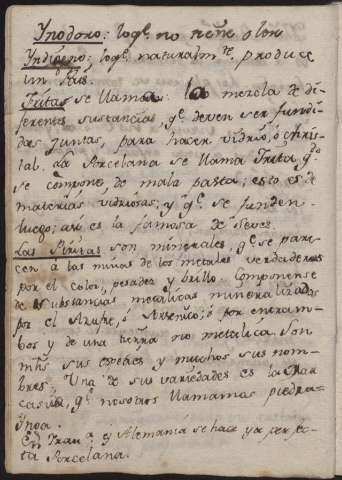 Ynodoro: loq.e no tiene olor
Yndigeno; loq.e naturalm.te produce
un Pais.
Fritas se llama la mezcla de di-
ferentes sustancias, q.e deven ser fundi-
das juntas, para hacer vidrio, ó chris-
tal. La Porcelana se llama Frita, q.do
se compone de mala pasta; esto es de
materias vidriosas; y q.e se funden
luego; asi es la famosa de Seves.
Las Piritas son minerales, q.e se pare-
cen á las minas de los metales verdaderos
por el color, pesadez y brillo. Componense
de substancias metalicas mineralizadas
por el Azufre, ó Arsenico; ó por entram-
bos y de una tierra no metalica. Son
mhs sus especies y muchos sus nom-
bres. Una de sus variedades es la Mar-
casita, q.e nosotros llamamos piedra
Ynga.
En Fran.a y Alemania se hace ya perfec-
ta Porcelana.